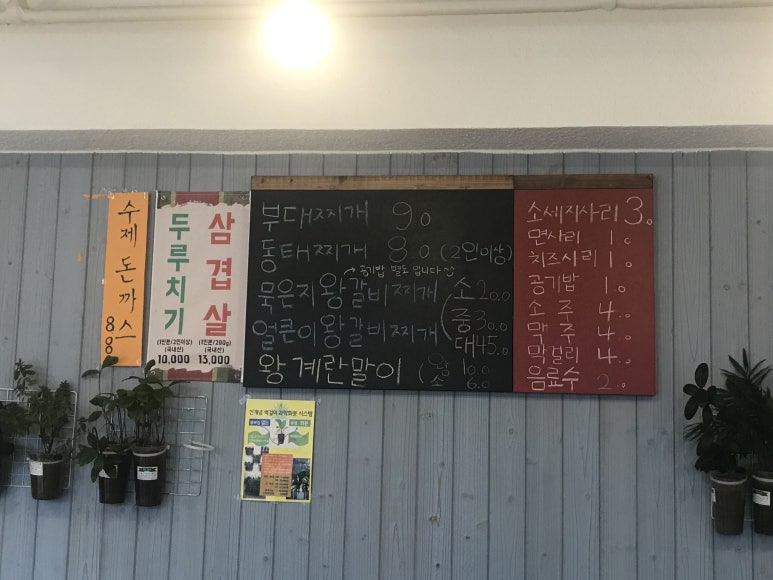 수제 돈까스 8.8
두루치기
(1인분/2인이상)
(국내산)
10,000
삼겹살
(1인분/200g)
(국내산)
13,000
부대찌개 9.0
동태찌개 8.0 (2인이상)
공기밥 별도 입니다
묵은지왕갈비찌개
얼큰이왕갈비찌개
소 20.0
중 30.0
대 45.0
왕계란말이
10.0
소 6.0
소세지사리 3.0
면사리 1.0
치즈사리 1.0
공기밥 1.0
소주 4.0
맥주 4.0
막걸리 4.0
음료수 2.0
신개념 벽걸이 과학화분 시스템